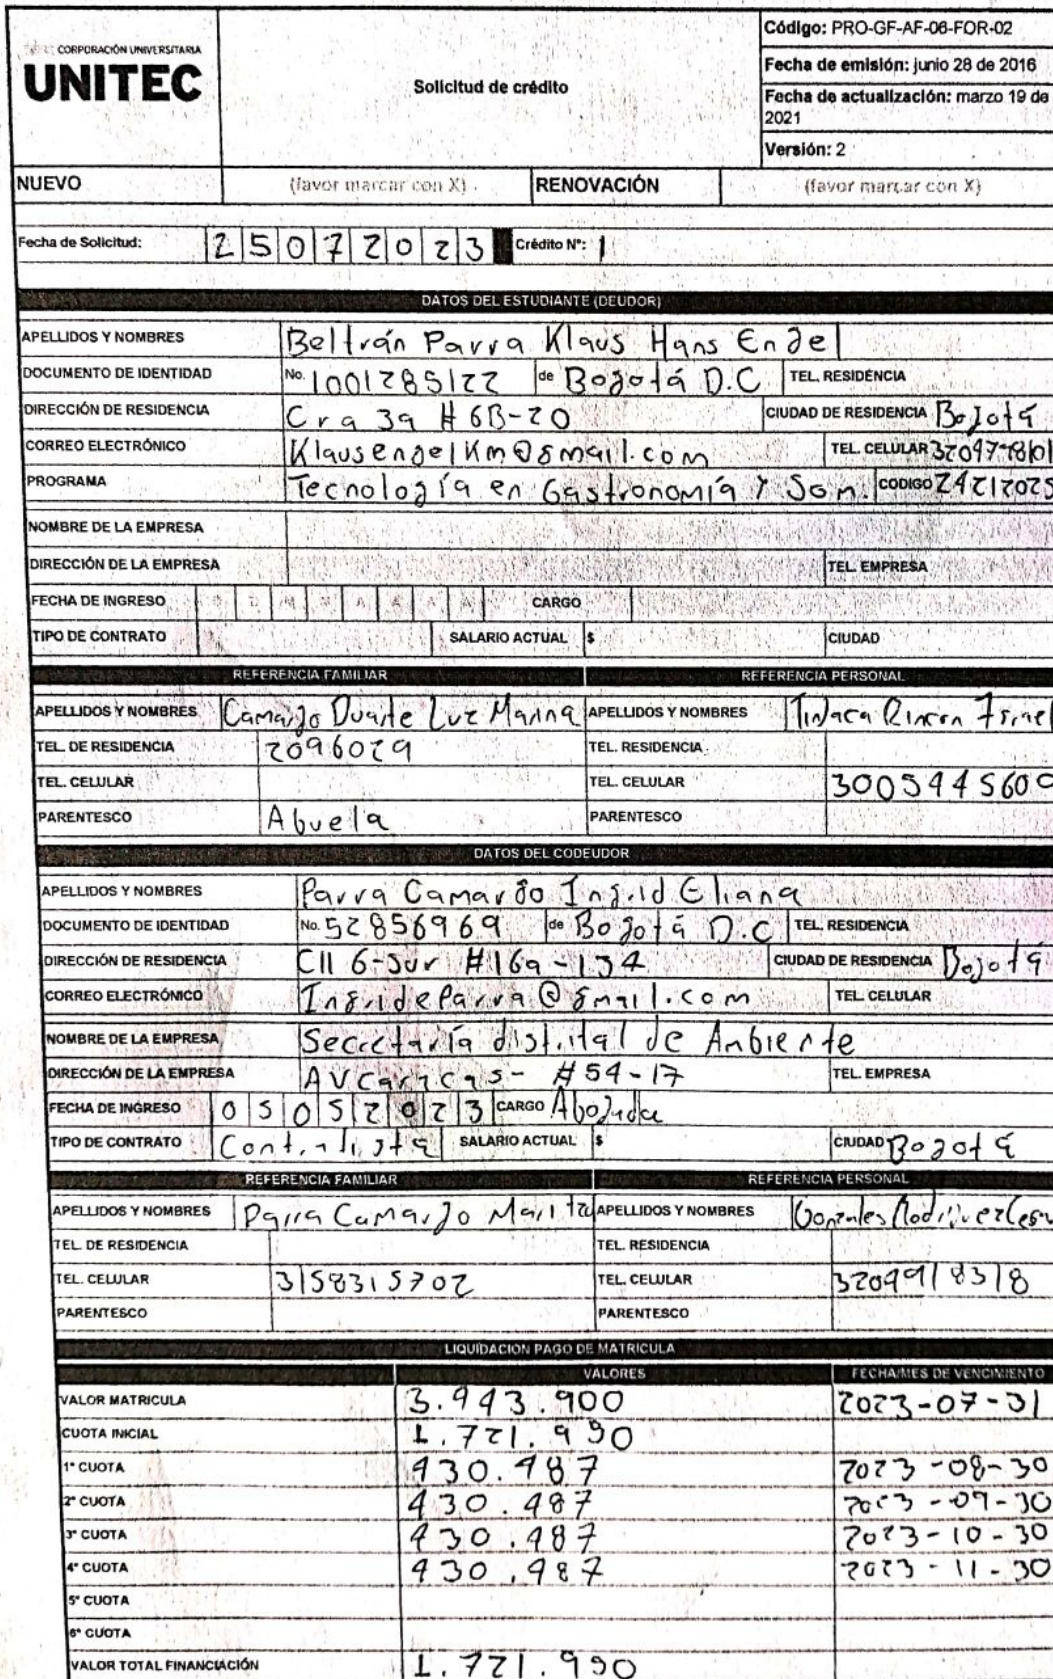 CORPORACIÓN UNIVERSITARIA
UNITEC
Solicitud de crédito
Código: PRO-GF-AF-06-FOR-02
Fecha de emisión: junio 28 de 2016
Fecha de actualización: marzo 19 de 2021
Versión: 2
NUEVO (favor marcar con X) RENOVACIÓN (favor marcar con X)
Fecha de Solicitud: 25072023 Crédito N°: 1
DATOS DEL ESTUDIANTE (DEUDOR)
APELLIDOS Y NOMBRES Beltrán Parra Klaus Hans Engel
DOCUMENTO DE IDENTIDAD No. 1001285122 de Bogotá D.C TEL. RESIDENCIA
DIRECCIÓN DE RESIDENCIA Cra 3a #6B-20 CIUDAD DE RESIDENCIA Bogotá
CORREO ELECTRÓNICO KlausengelKm@gmail.com TEL. CELULAR
PROGRAMA Tecnología en Gastronomía Y Som. CODIGO
NOMBRE DE LA EMPRESA
DIRECCIÓN DE LA EMPRESA TEL. EMPRESA
FECHA DE INGRESO D D M M A A A A CARGO
TIPO DE CONTRATO SALARIO ACTUAL $ CIUDAD
REFERENCIA FAMILIAR REFERENCIA PERSONAL
APELLIDOS Y NOMBRES Camargo Duarte Luz Marina APELLIDOS Y NOMBRES Rincon
TEL. DE RESIDENCIA 2096029 TEL. RESIDENCIA
TEL. CELULAR TEL. CELULAR 3005445600
PARENTESCO Abuela PARENTESCO
DATOS DEL CODEUDOR
APELLIDOS Y NOMBRES Parra Camargo Ingrid Eliana
DOCUMENTO DE IDENTIDAD No. 52856969 de Bogotá D.C TEL. RESIDENCIA
DIRECCIÓN DE RESIDENCIA Cll 6-Sur #16a-134 CIUDAD DE RESIDENCIA Bogotá
CORREO ELECTRÓNICO Ingrideparra@gmail.com TEL. CELULAR
NOMBRE DE LA EMPRESA Secretaría distrital de Ambiente
DIRECCIÓN DE LA EMPRESA AV Caracas- #54-17 TEL. EMPRESA
FECHA DE INGRESO 05052023 CARGO Abogada
TIPO DE CONTRATO Contratista SALARIO ACTUAL $ CIUDAD Bogotá
REFERENCIA FAMILIAR REFERENCIA PERSONAL
APELLIDOS Y NOMBRES Parra Camargo Maritza APELLIDOS Y NOMBRES Gonzales Rodriguez
TEL. DE RESIDENCIA TEL. RESIDENCIA
TEL. CELULAR 3158315702 TEL. CELULAR 3209918318
PARENTESCO PARENTESCO
LIQUIDACION PAGO DE MATRICULA
VALORES FECHA/MES DE VENCIMIENTO
VALOR MATRICULA 3.443.900 2023-07-31
CUOTA INICIAL 1.721.950
1ª CUOTA 430.487 2023-08-30
2ª CUOTA 430.487 2023-09-30
3ª CUOTA 430.487 2023-10-30
4ª CUOTA 430.487 2023-11-30
5ª CUOTA
6ª CUOTA
VALOR TOTAL FINANCIACIÓN 1.721.950